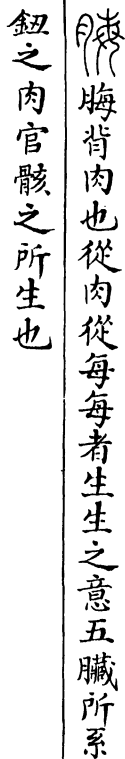 脢脢背肉也從肉從每每者生生之意五臟所系
鈕之肉官骸之所生也